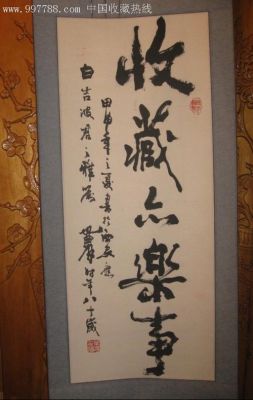 www.997788.com 中国收藏热线
收藏亦樂事
甲申年之夏書於
白吉波君之雅屬
時年八十歲